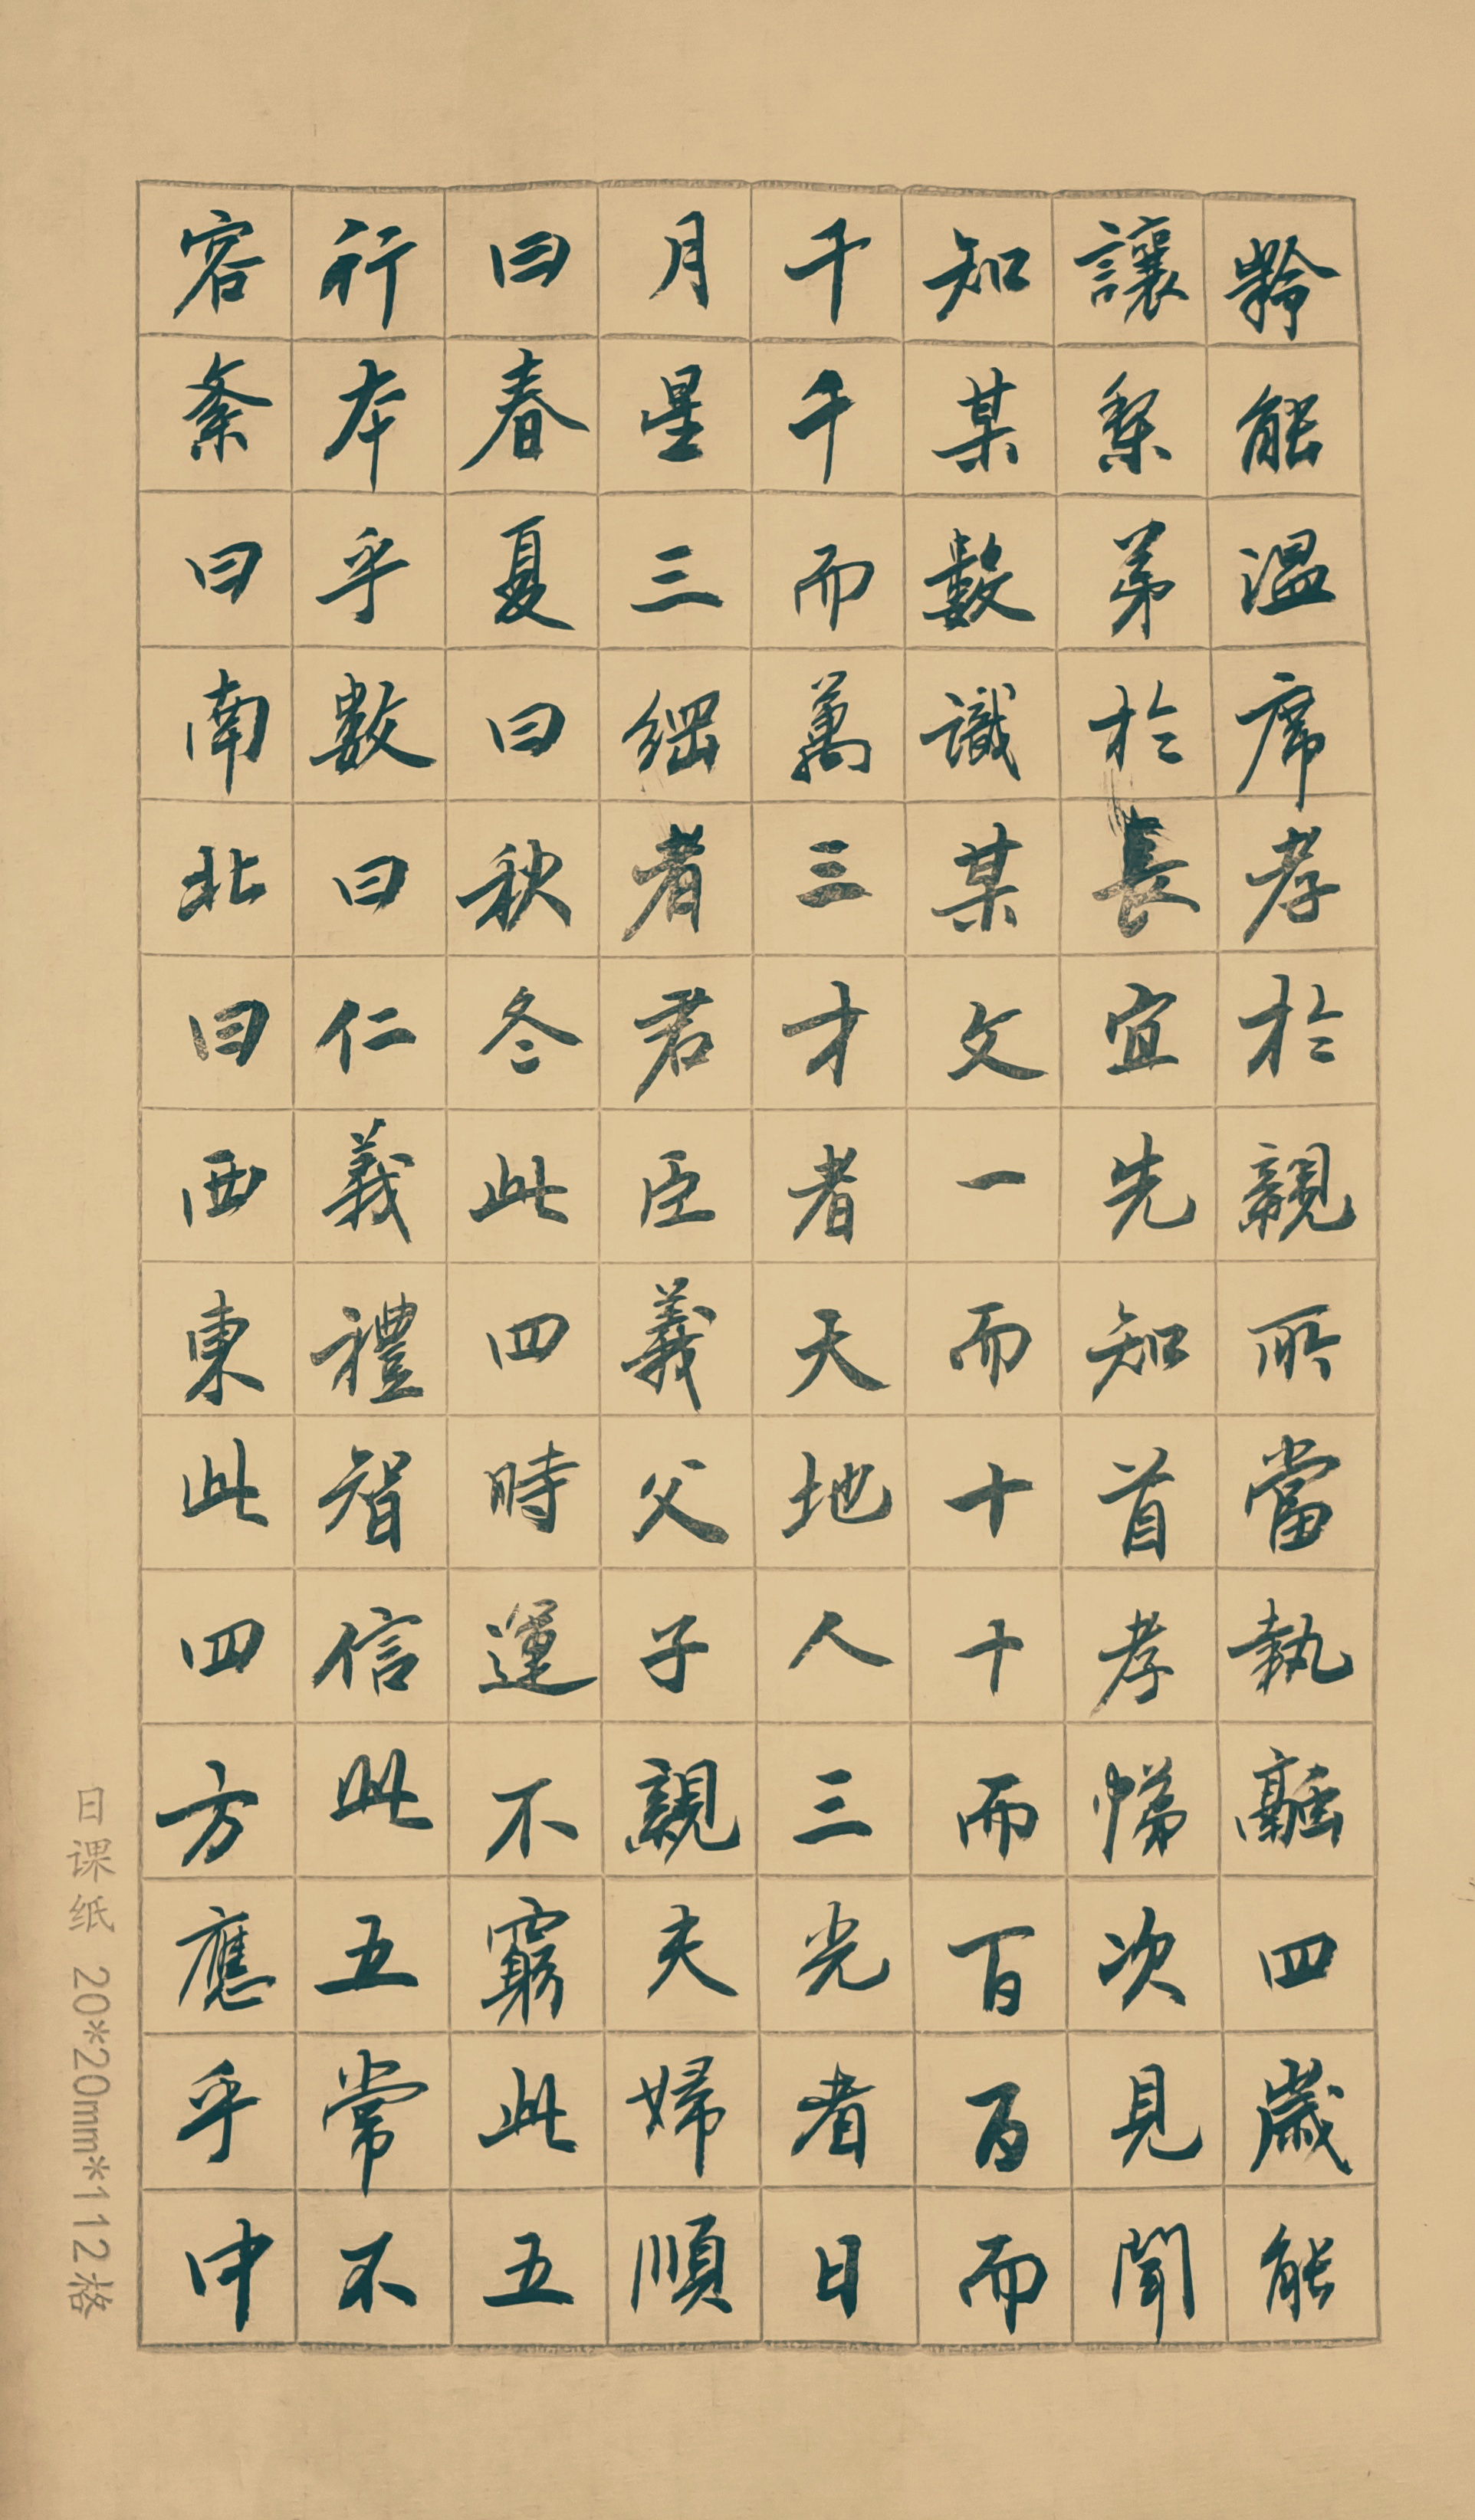 齡能温席孝於親所當執融四歲能
讓梨弟於長宜先知首孝悌次見聞
知某數識某文一而十十而百百而
千千而萬三才者天地人三光者日
月星三綱者君臣義父子親夫婦順
曰春夏曰秋冬此四時運不窮此五
行本乎數曰仁義禮智信此五常不
容紊曰南北曰西東此四方應乎中
日课纸 20*20mm*112格